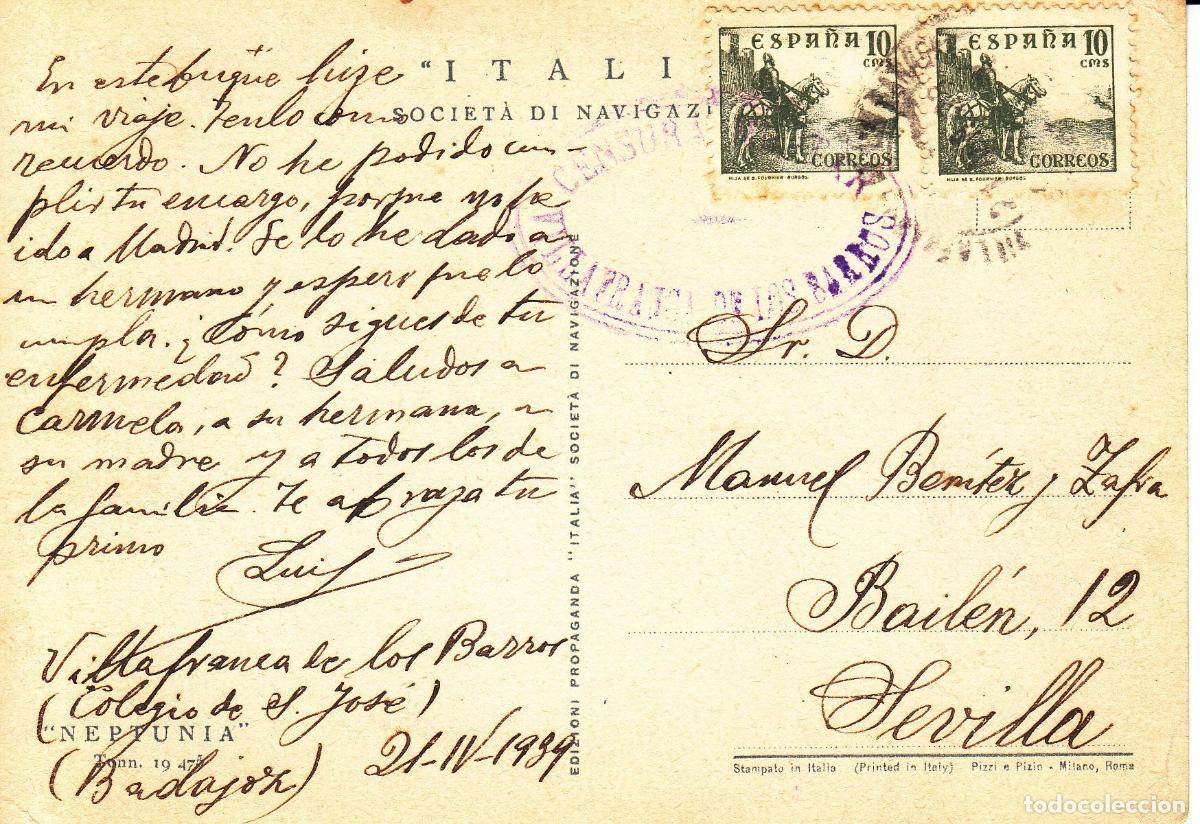 En este buque hize
mi viaje. Tenlo como
recuerdo. No he podido cum-
plir tu encargo, porque no he
ido a Madrid. Se lo he dado a
un hermano y espero que lo
cumpla. ¿Cómo sigues de tu
enfermedad? Saludos a
Carmela, a su hermana, a
su madre y a todos los de
la familia. Te abraza tu
primo
Luis
Villafranca de los Barros
(Colegio de S. José)
"NEPTUNIA"
Tonn. 19 475
(Badajoz)
21-IV-1939
"ITALI
SOCIETÀ DI NAVIGAZI
EDIZIONI PROPAGANDA "ITALIA" SOCIETÀ DI NAVIGAZIONE
ESPAÑA 10
CMS
CORREOS
HIJA DE B. FOURNIER-BURGOS
ESPAÑA 10
CMS
CORREOS
HIJA DE B. FOURNIER-BURGOS
CENSURA
VILLAFRANCA DE LOS BARROS
Sr. D.
Manuel Benítez y Zafra
Bailén, 12
Sevilla
Stampato in Italia (Printed in Italy) Pizzi e Pizio - Milano, Roma
todocoleccion